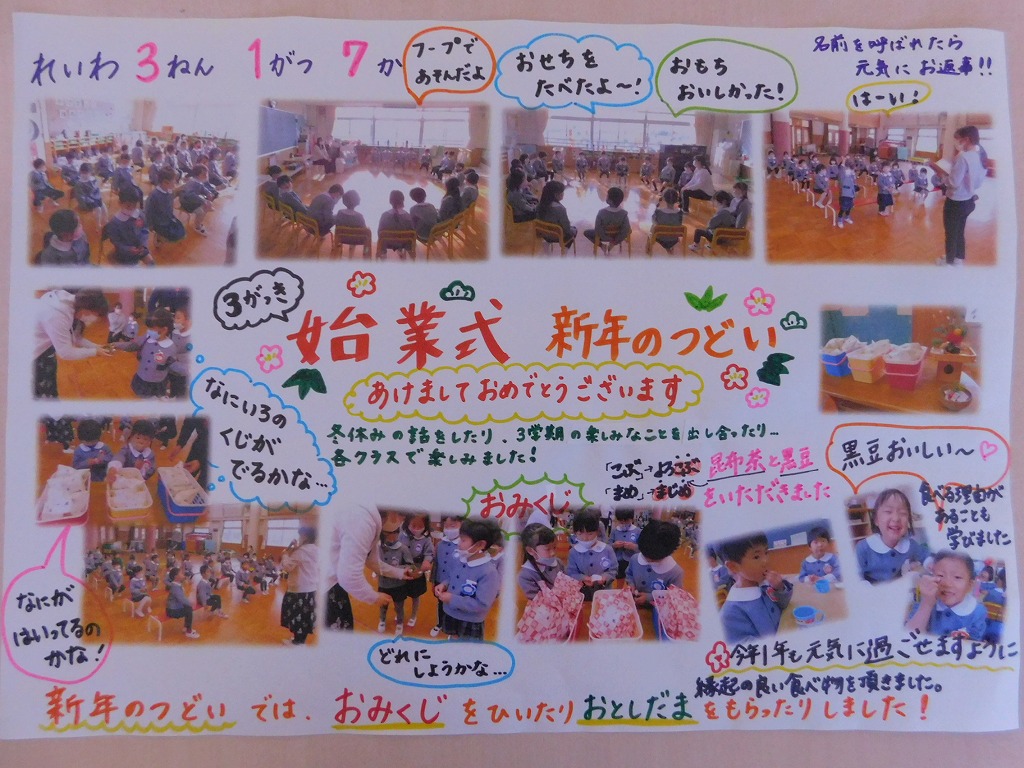 れいわ 3ねん 1がつ 7か
フープで
あそんだよ
おせちを
たべたよ〜!
おもち
おいしかった!
名前を呼ばれたら
元気に お返事!!
はーい!
3がっき
始業式 新年のつどい
あけましておめでとうございます
冬休みの話をしたり、3学期の楽しみなことを出し合ったり…
各クラスで楽しみました!
なにいろの
くじが
でるかな…
「こぶ」→よろこぶ
「まめ」→まじめ
昆布茶と黒豆
をいただきました
黒豆おいしい〜♡
食べる理由が
あることも
学びました
おみくじ
なにが
はいってるの
かな!
どれに
しようかな…
今年1年も元気に過ごせますように
縁起の良い食べ物を頂きました。
新年のつどいでは、おみくじをひいたりおとしだまをもらったりしました!